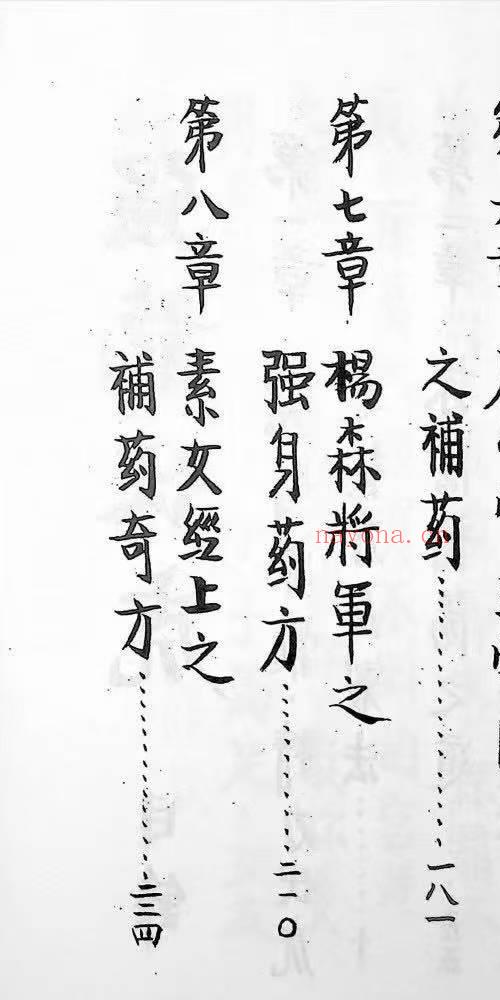 之補药……一八一
第七章 楊森將軍之
强身药方……二一〇
第八章 素女經上之
補药奇方……二三四
nayona.cn